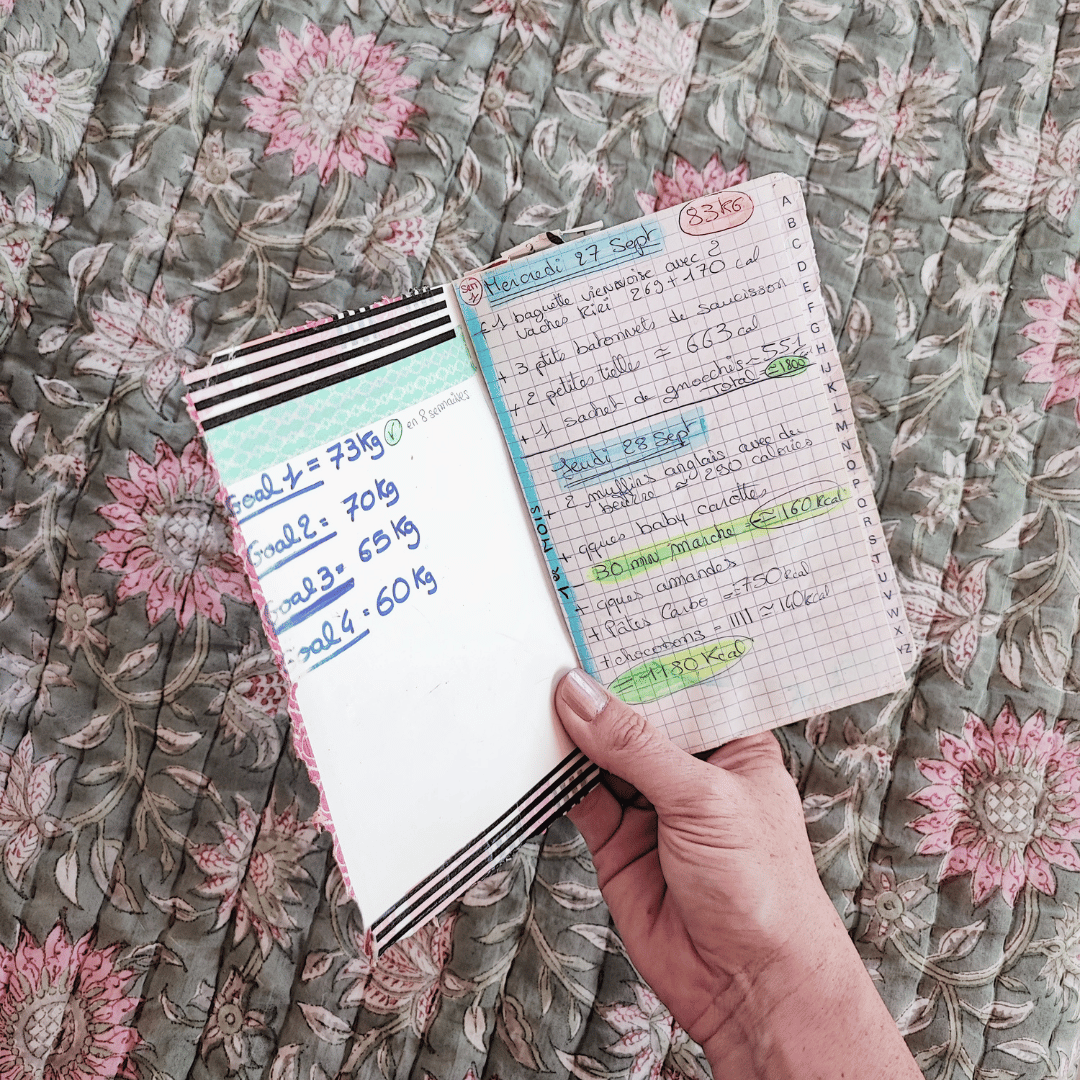 Goal 1 = 73Kg en 8 semaines
Goal 2 = 70Kg
Goal 3 = 65Kg
Goal 4 = 60Kg
83KG
Mercredi 27 Sept
1 baguette viennoise avec 2
vaches Kiri 269 + 170 cal
+ 3 ptits batonnets de saucisson
+ 2 petites tielles ≈ 663 cal
+ 1 sachet de gnocchis
Total = 1800
Jeudi 28 Sept
+ 2 muffins anglais avec du
beurre ≈ 290 calories
+ qques baby carottes
30 min marche = ≈ 160 Kcal
+ qques amandes
+ Pâtes Carbo = ≈ 750 Kcal
+ chocobons = |||| ≈ 140 kcal
= 1180 Kcal
1er MOIS
A
B
C
D
E
F
G
H
IJ
K
L
M
N
O
P
Q
R
S
T
U
V
W
X
YZ